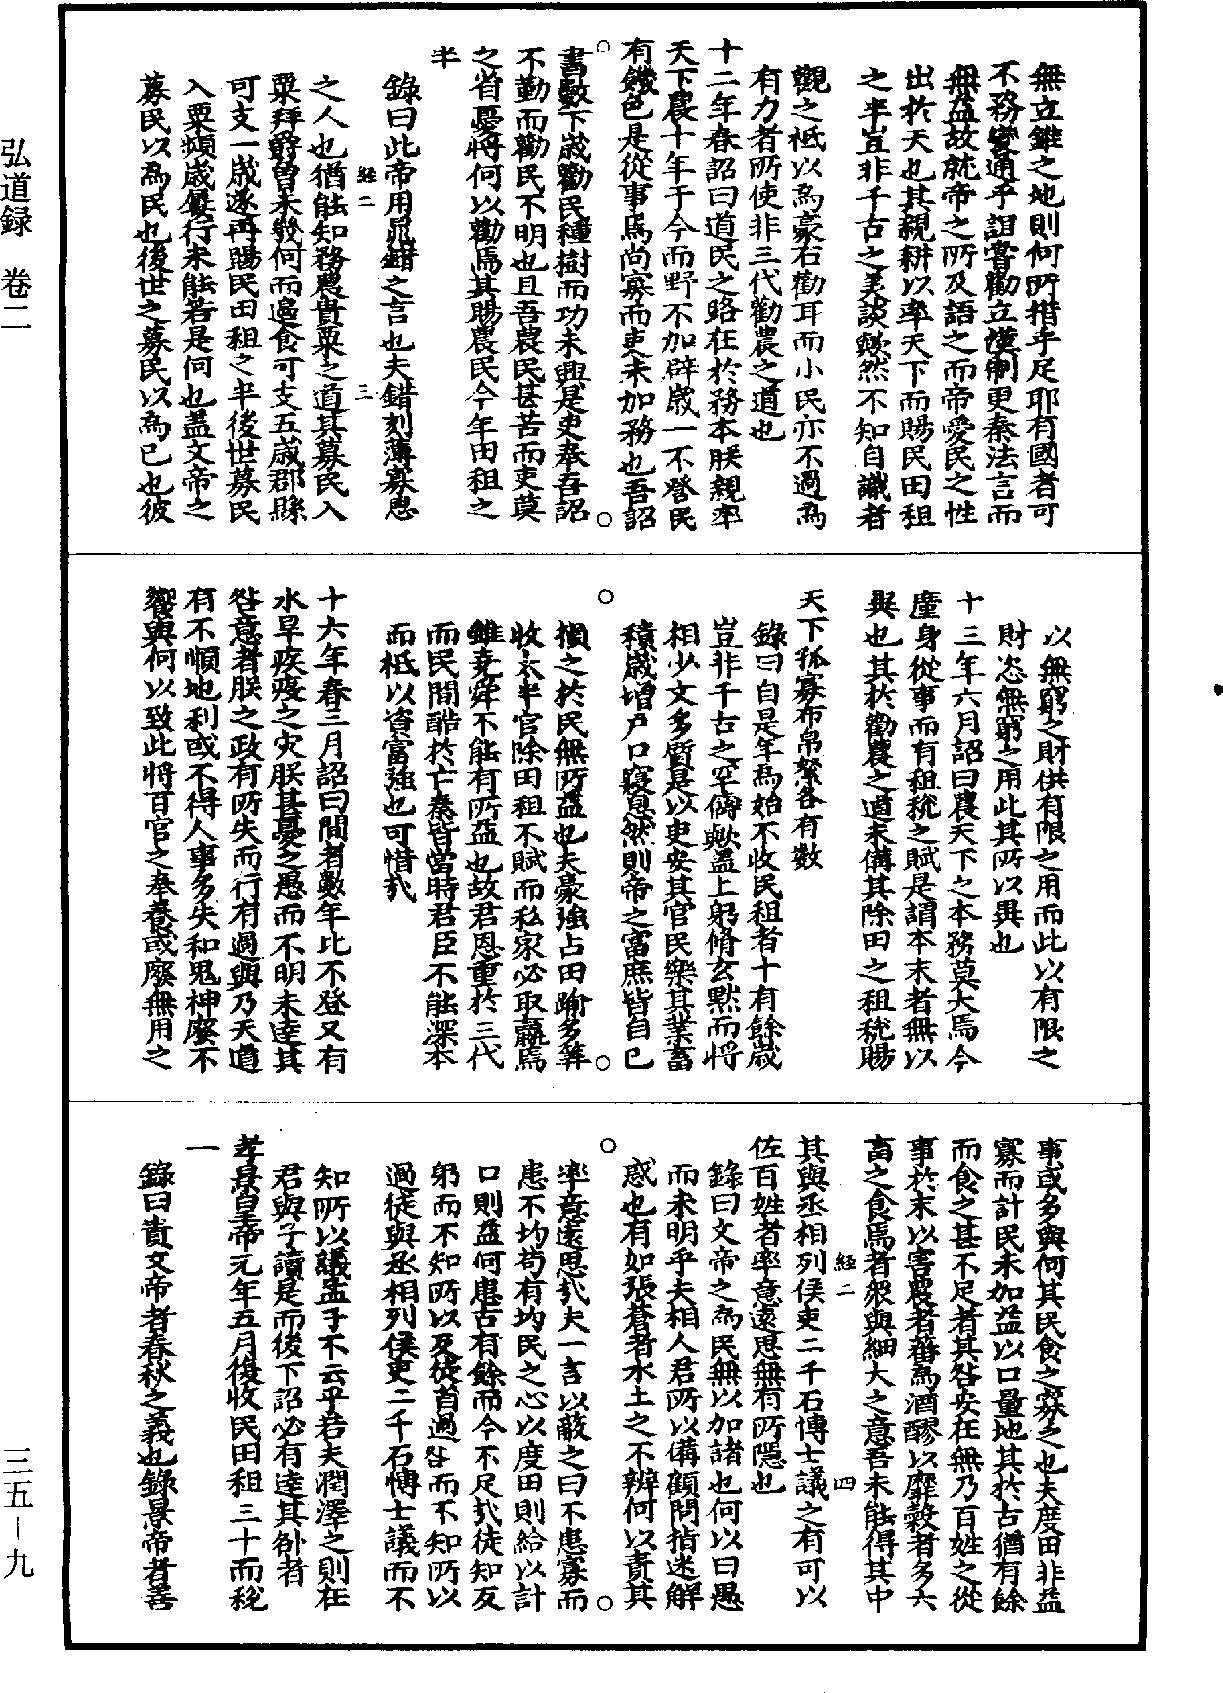 弘道録　卷二
三五－九
無立錐之地則何所措手足耶有國者可
不務變通乎誼嘗勸立漢制更秦法言而
無益故就帝之所及語之而帝愛民之性
出於天也其親耕以率天下而賜民田租
之半豈非千古之美談歟然不知自識者
觀之祗以為豪右勸耳而小民亦不過為
有力者所使非三代勸農之道也
十二年春詔曰道民之路在於務本朕親率
天下農十年于今而野不加辟歲一不登民
有饑色是從事焉尚寡而吏未加務也吾詔
書數下歲勸民種樹而功未興是吏奉吾詔
不勤而勸民不明也且吾農民甚苦而吏莫
之省憂將何以勸焉其賜農民今年田租之
半
錄曰此帝用晁錯之言也夫錯刻薄寡恩
經二
三
之人也猶能知務農貴粟之道其募民入
粟拜爵曾未幾何而邊食可支五歲郡縣
可支一歲遂再賜民田租之半後世募民
入粟頻歲屢行未能若是何也蓋文帝之
募民以為民也後世之募民以為己也彼
以無窮之財供有限之用而此以有限之
財恣無窮之用此其所以異也
十三年六月詔曰農天下之本務莫大焉今
廑身從事而有租稅之賦是謂本末者無以
異也其於勸農之道未備其除田之租稅賜
天下孤寡布帛絮各有數
錄曰自是年為始不收民租者十有餘歲
豈非千古之罕儔歟蓋上躬脩玄默而將
相少文多質是以吏安其官民樂其業畜
積歲增戶口寖息然則帝之富庶皆自己
損之於民無所益也夫豪強占田踰多筭
收太半官除田租不賦而私家必取贏焉
雖堯舜不能有所益也故君恩重於三代
而民間酷於亡秦皆當時君臣不能深本
而祗以資富強也可惜哉
十六年春三月詔曰間者數年比不登又有
水旱疾疫之灾朕甚憂之愚而不明未達其
咎意者朕之政有所失而行有過與乃天道
有不順地利或不得人事多失和鬼神廢不
饗與何以致此將百官之奉養或廢無用之
事或多與何其民食之寡乏也夫度田非益
寡而計民未加益以口量地其於古猶有餘
而食之甚不足者其咎安在無乃百姓之從
事於末以害農者蕃為酒醪以靡穀者多六
畜之食焉者眾與細大之意吾未能得其中
經二
四
其與丞相列侯吏二千石博士議之有可以
佐百姓者率意遠思無有所隱也
錄曰文帝之為民無以加諸也何以曰愚
而未明乎夫相人君所以備顧問指迷解
惑也有如張蒼者水土之不辨何以責其
率意遠思哉夫一言以蔽之曰不患寡而
患不均苟有均民之心以度田則給以計
口則益何患古有餘而今不足哉徒知反
躬而不知所以反徒首過咎而不知所以
過徒與丞相列侯吏二千石博士議而不
知所以議孟子不云乎若夫潤澤之則在
君與子讀是而後下詔必有達其卻者
孝景皇帝元年五月復收民田租三十而稅
一
錄曰責文帝者春秋之義也錄景帝者善